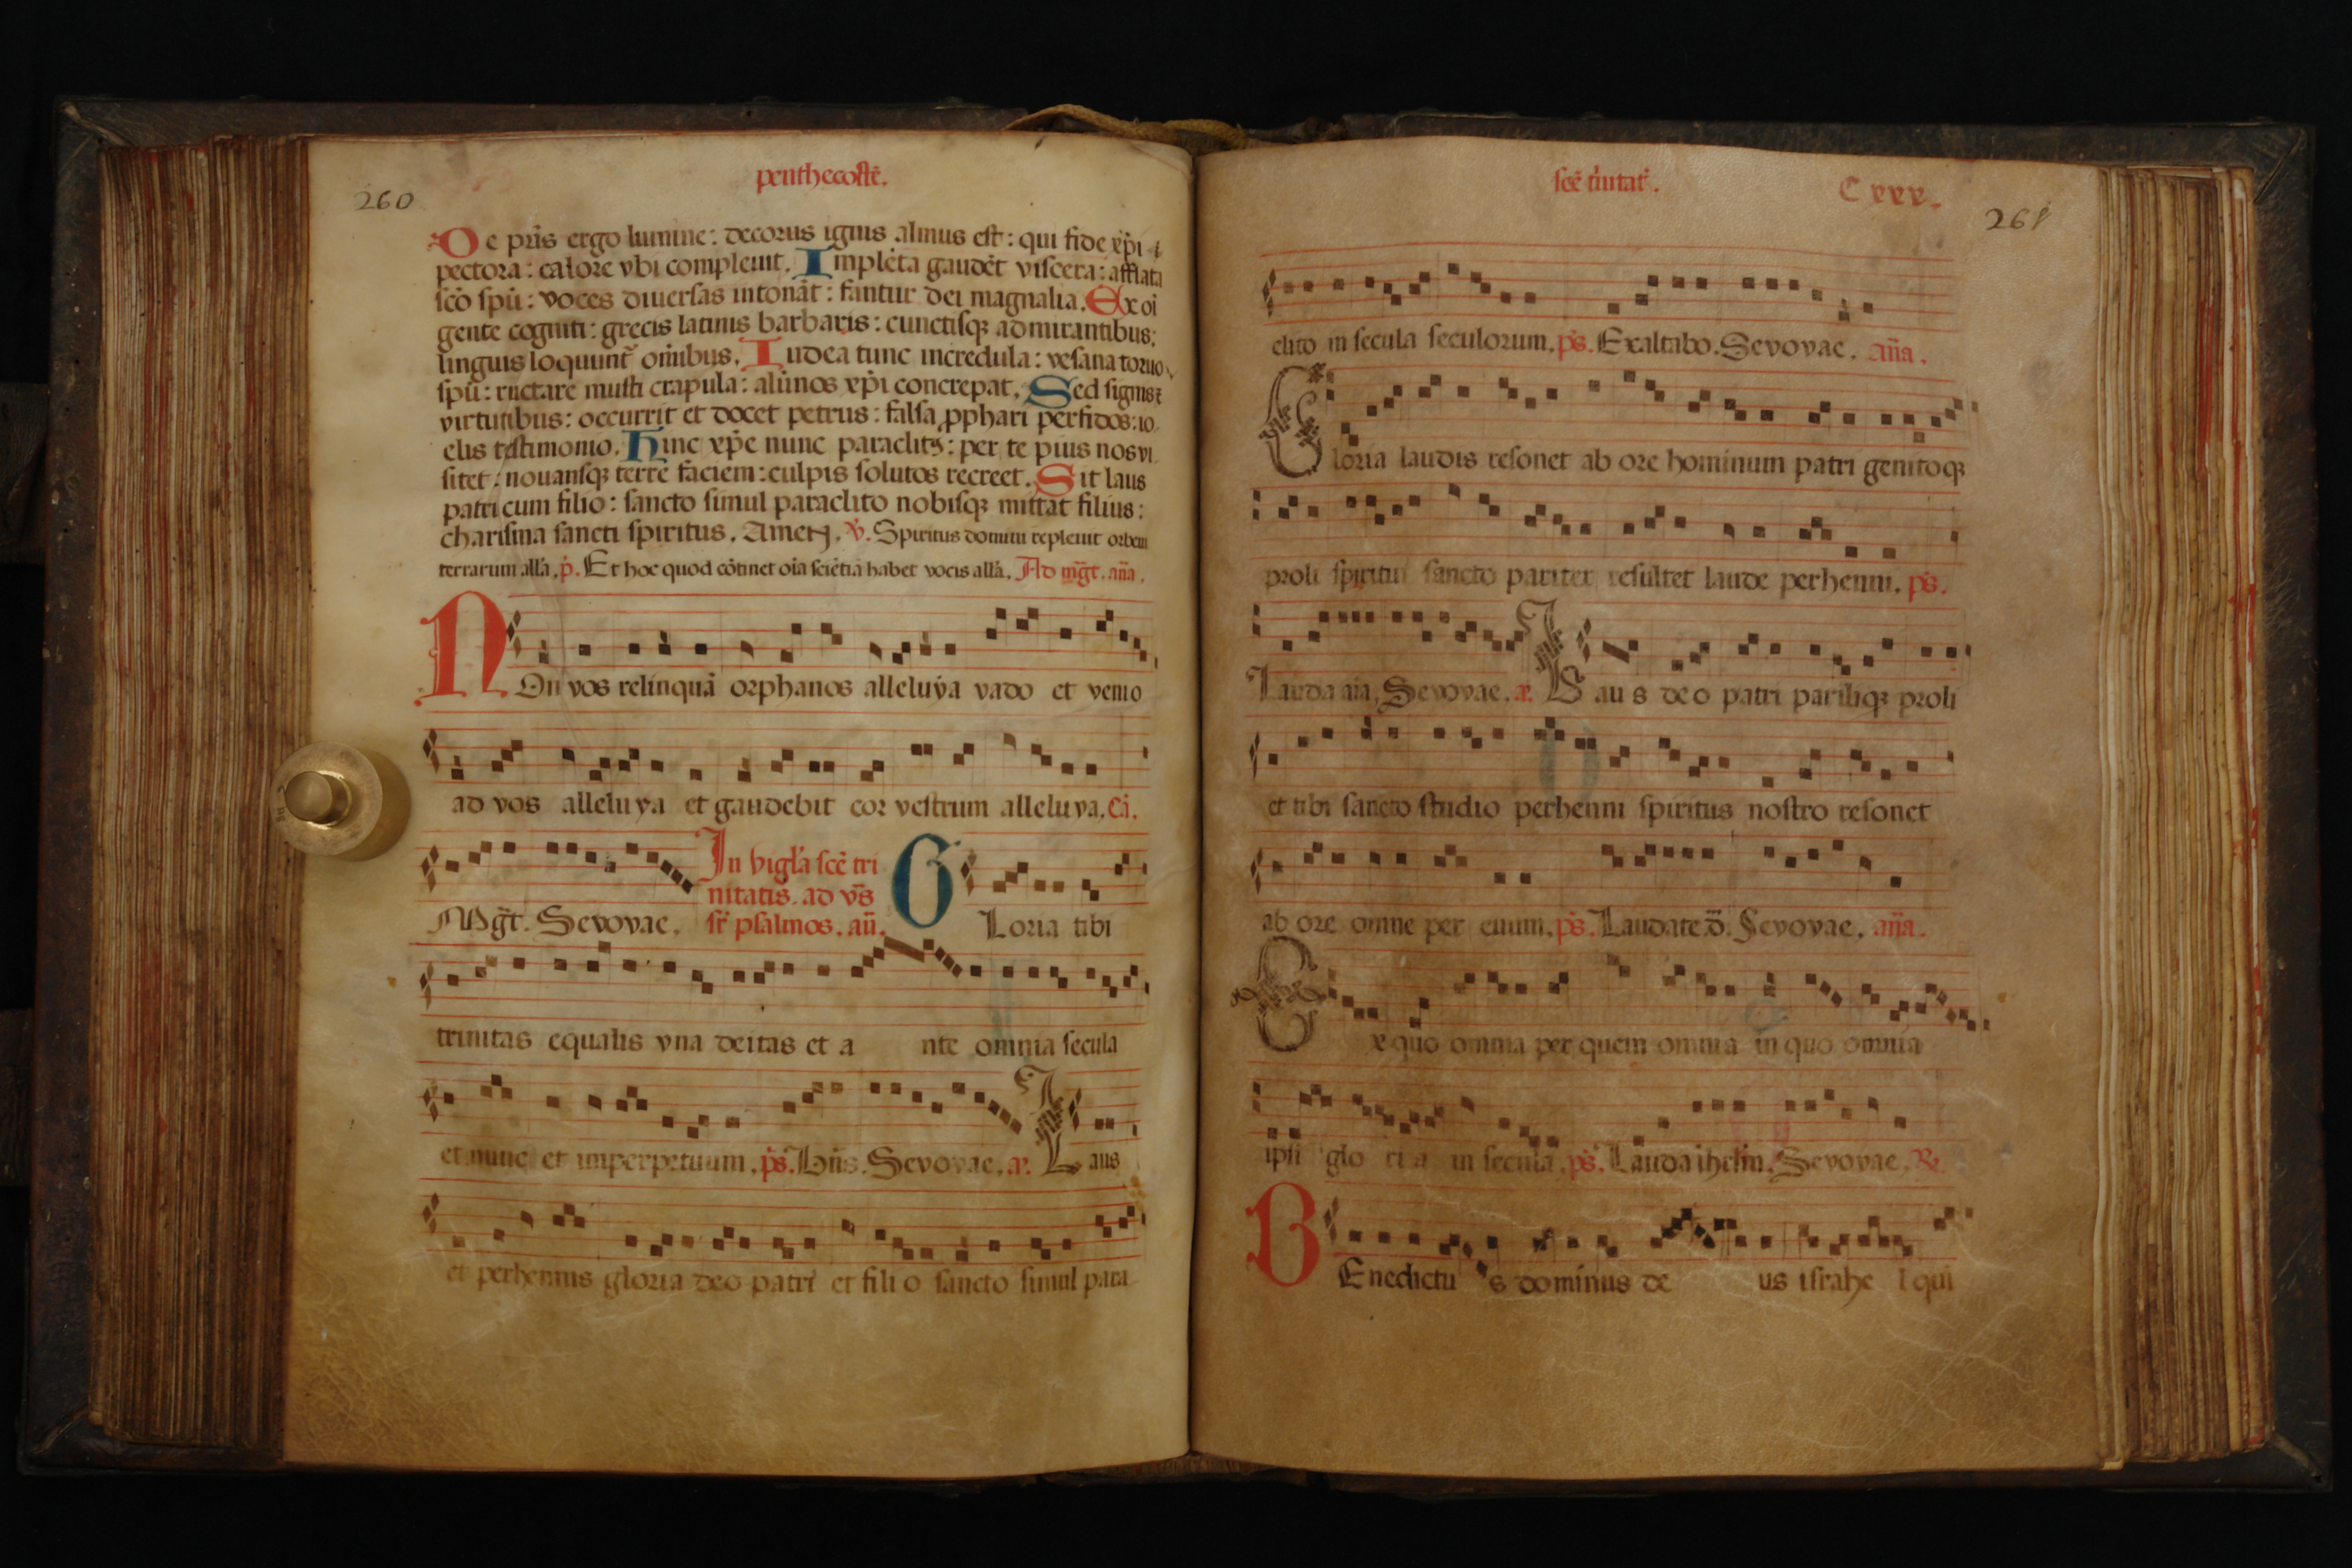 penthecostē.
260
De pr̄is ergo lumine: decorus ignis almus est: qui fide xp̄i
pectora: calore vbi compleuit. Impleta gaudēt viscera: afflata
sc̄o spū: voces diuersas intonāt: fantur dei magnalia. Ex oī
gente cogniti: grecis latinis barbaris: cunctisqꝫ admirantibus:
linguis loquunt᷑ om̄ibus. Iudea tunc incredula: vesana toruo
spū: ructare musti crapula: alūnos xp̄i concrepat. Sed signis ⁊
virtutibus: occurrit et docet petrus: falsa ꝓphari perfidos: io
elis testimonio. Hinc xp̄e nunc paraclitꝰ: per te pius nos vi
sitet: nouansqꝫ terre faciem: culpis solutos recreet. Sit laus
patri cum filio: sancto simul paraclito nobisqꝫ mittat filius:
charisma sancti spiritus. Amen. ℣. Spiritus domini repleuit orbem
terrarum all̄a. p̄. Et hoc quod cōtinet oīa sciētiā habet vocis all̄a. Ad mḡt. an̄a.
NOn vos relinquā orphanos alleluya vado et venio
ad vos alleluya et gaudebit cor vestrum alleluya. Cā.
Mḡt. Sevovae. In vigl̄a sc̄e tri
nitatis. ad vs̄
sr̄ psalmos. an̄. GLoria tibi
trinitas equalis vna deitas et a nte omnia secula
et nunc et imperpetuum. p̄s. Sevovae. Laus
et perhennis gloria deo patri et fili o sancto simul para
sc̄e t̓nitat᷑. C xxx.
261
clito in secula seculorum. p̄s. Exaltabo. Sevovae. an̄a.
Gloria laudis resonet ab ore hominum patri genitoqꝫ
proli spiritui sancto pariter resultet laude perhenni. p̄s.
Lauda aīa. Sevovae. Lau s deo patri parilíqꝫ proli
et tibi sancto studio perhenni spiritus nostro resonet
ab ore omne per euum. p̄s. Laudate d̄. Sevovae. an̄a.
Ex quo omnia per quem omnia in quo omnia
ipsi glo ri a in secula. p̄s. Lauda ihrl̄m. Sevovae. ℟
BEnedictu s dominus de us israhe l qui